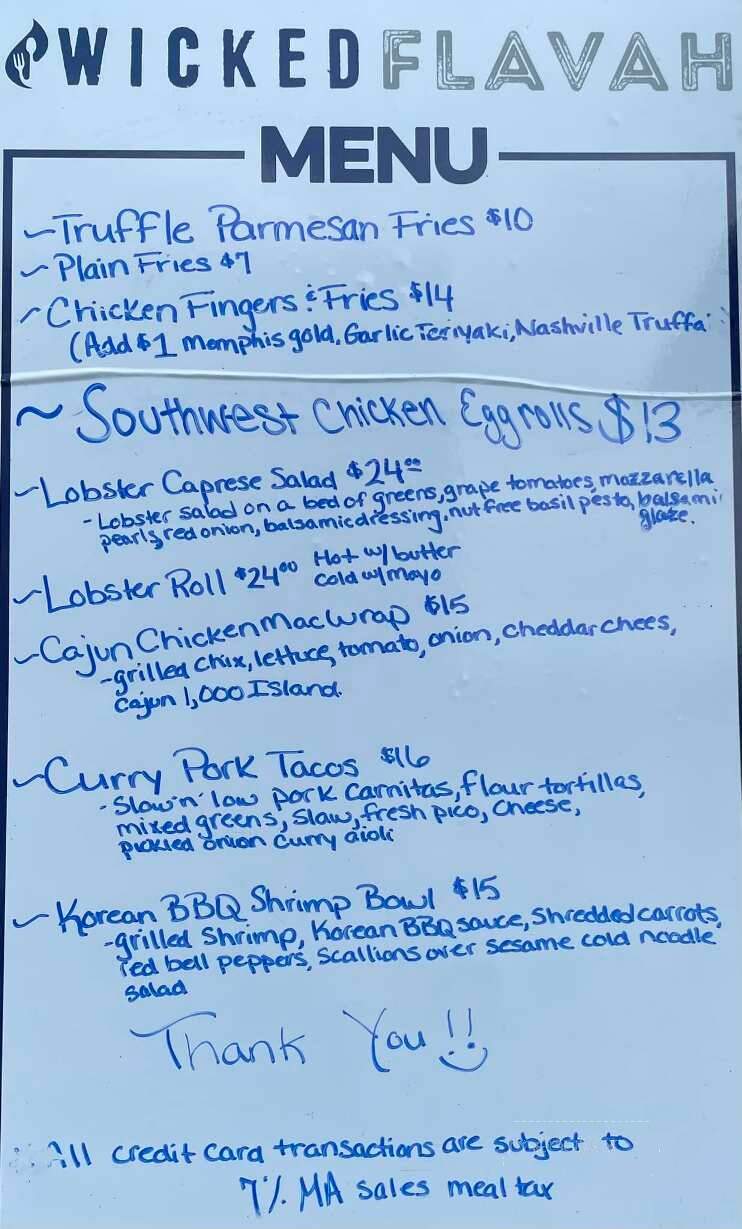 WICKED FLAVAH
MENU
~Truffle Parmesan Fries $10
~Plain Fries $7
~Chicken Fingers & Fries $14
(Add $1 memphis gold, Garlic Teriyaki, Nashville
~ Southwest Chicken Eggrolls $13
~Lobster Caprese Salad $24.00
- Lobster salad on a bed of greens, grape tomatoes, mozzarella
pearls, red onion, balsamic dressing, nut free basil pesto, balsamic
glaze.
~Lobster Roll $24.00 Hot w/butter
cold w/mayo
~Cajun Chicken Mac Wrap $15
-grilled chix, lettuce, tomato, onion, cheddar chees,
cajun 1,000 Island.
~Curry Pork Tacos $16
-Slow 'n' low pork carnitas, flour tortillas,
mixed greens, slaw, fresh pico, cheese,
pickled onion curry aioli
~Korean BBQ Shrimp Bowl $15
-grilled Shrimp, Korean BBQ sauce, Shredded carrots,
red bell peppers, scallions over sesame cold noodle
salad
Thank You!!
All credit card transactions are subject to
7% MA sales meal tax